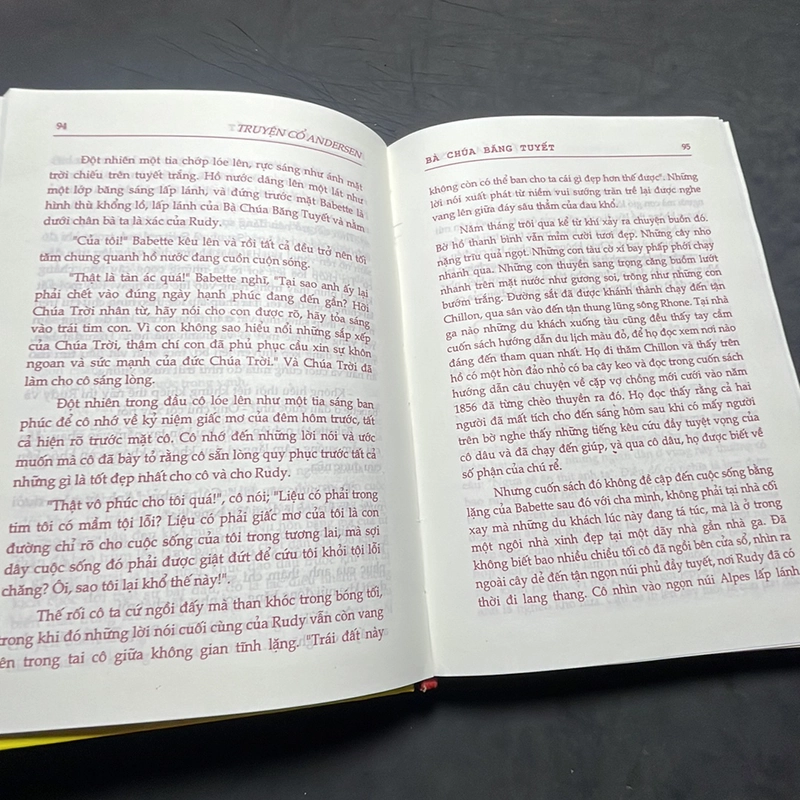 94
TRUYỆN CỔ ANDERSEN
Đột nhiên một tia chớp lóe lên, rực sáng như ánh mặt
trời chiếu trên tuyết trắng. Hồ nước dâng lên một lát như
một lớp băng sáng lấp lánh, và đứng trước mặt Babette là
hình thù khổng lồ, lấp lánh của Bà Chúa Băng Tuyết và nằm
dưới chân bà ta là xác của Rudy.
"Của tôi!" Babette kêu lên và rồi tất cả đều trở nên tối
tăm chung quanh hồ nước đang cuồn cuộn sóng.
"Thật là tàn ác quá!" Babette nghĩ, "Tại sao anh ấy lại
phải chết vào đúng ngày hạnh phúc đang đến gần? Hỡi
Chúa Trời nhân từ, hãy nói cho con được rõ, hãy tỏa sáng
vào trái tim con. Vì con không sao hiểu nổi những sắp xếp
của Chúa Trời, thậm chí con đã phủ phục cầu xin sự khôn
ngoan và sức mạnh của đức Chúa Trời." Và Chúa Trời đã
làm cho cô sáng lòng.
Đột nhiên trong đầu cô lóe lên như một tia sáng ban
phúc để cô nhớ về kỷ niệm giấc mơ của đêm hôm trước, tất
cả hiện rõ trước mặt cô. Cô nhớ đến những lời nói và ước
muốn mà cô đã bày tỏ rằng cô sẵn lòng quỳ phục trước tất cả
những gì là tốt đẹp nhất cho cô và cho Rudy.
"Thật vô phúc cho tôi quá!", cô nói; "Liệu có phải trong
tim tôi có mầm tội lỗi? Liệu có phải giấc mơ của tôi là con
đường chỉ rõ cho cuộc sống của tôi trong tương lai, mà sợi
dây cuộc sống đó phải được giật đứt để cứu tôi khỏi tội lỗi
chăng? Ôi, sao tôi lại khổ thế này!".
Thế rồi cô ta cứ ngồi đấy mà than khóc trong bóng tối,
trong khi đó những lời nói cuối cùng của Rudy vẫn còn vang
lên trong tai cô giữa không gian tĩnh lặng. "Trái đất này
BÀ CHÚA BĂNG TUYẾT
95
không còn có thể ban cho ta cái gì đẹp hơn thế được". Những
lời nói xuất phát từ niềm vui sướng tràn trề lại được nghe
vang lên giữa đáy sâu thẳm của đau khổ.
Năm tháng trôi qua kể từ khi xảy ra chuyện buồn đó.
Bờ hồ thanh bình vẫn mỉm cười tươi đẹp. Những cây nho
nặng trĩu quả ngọt. Những con tàu cờ xí bay phấp phới chạy
nhanh qua. Những con thuyền sang trọng căng buồm lướt
nhanh trên mặt nước như gương soi, trông như những con
bướm trắng. Đường sắt đã được khánh thành chạy đến tận
Chillon, qua sân vào đến tận thung lũng sông Rhone. Tại nhà
ga nào những du khách xuống tàu cũng đều thấy tay cầm
cuốn sách hướng dẫn du lịch màu đỏ, để họ đọc xem nơi nào
đáng đến tham quan nhất. Họ đi thăm Chillon và thấy trên
hồ có một hòn đảo nhỏ có ba cây keo và đọc trong cuốn sách
hướng dẫn câu chuyện về cặp vợ chồng mới cưới vào năm
1856 đã từng chèo thuyền ra đó. Họ đọc thấy rằng cả hai
người đã mất tích cho đến sáng hôm sau khi có mấy người
trên bờ nghe thấy những tiếng kêu cứu đầy tuyệt vọng của
cô dâu và đã chạy đến giúp, và qua cô dâu, họ được biết về
số phận của chú rể.
Nhưng cuốn sách đó không đề cập đến cuộc sống bằng
lặng của Babette sau đó với cha mình, không phải tại nhà cối
xay mà những du khách lúc này đang tá túc, mà là ở trong
một ngôi nhà xinh đẹp tại một dãy nhà gần nhà ga. Đã
không biết bao nhiều chiều tối cô đã ngồi bên cửa sổ, nhìn ra
ngoài cây dẻ đến tận ngọn núi phủ đầy tuyết, nơi Rudy đã có
thời đi lang thang. Cô nhìn vào ngọn núi Alpes lấp lánh